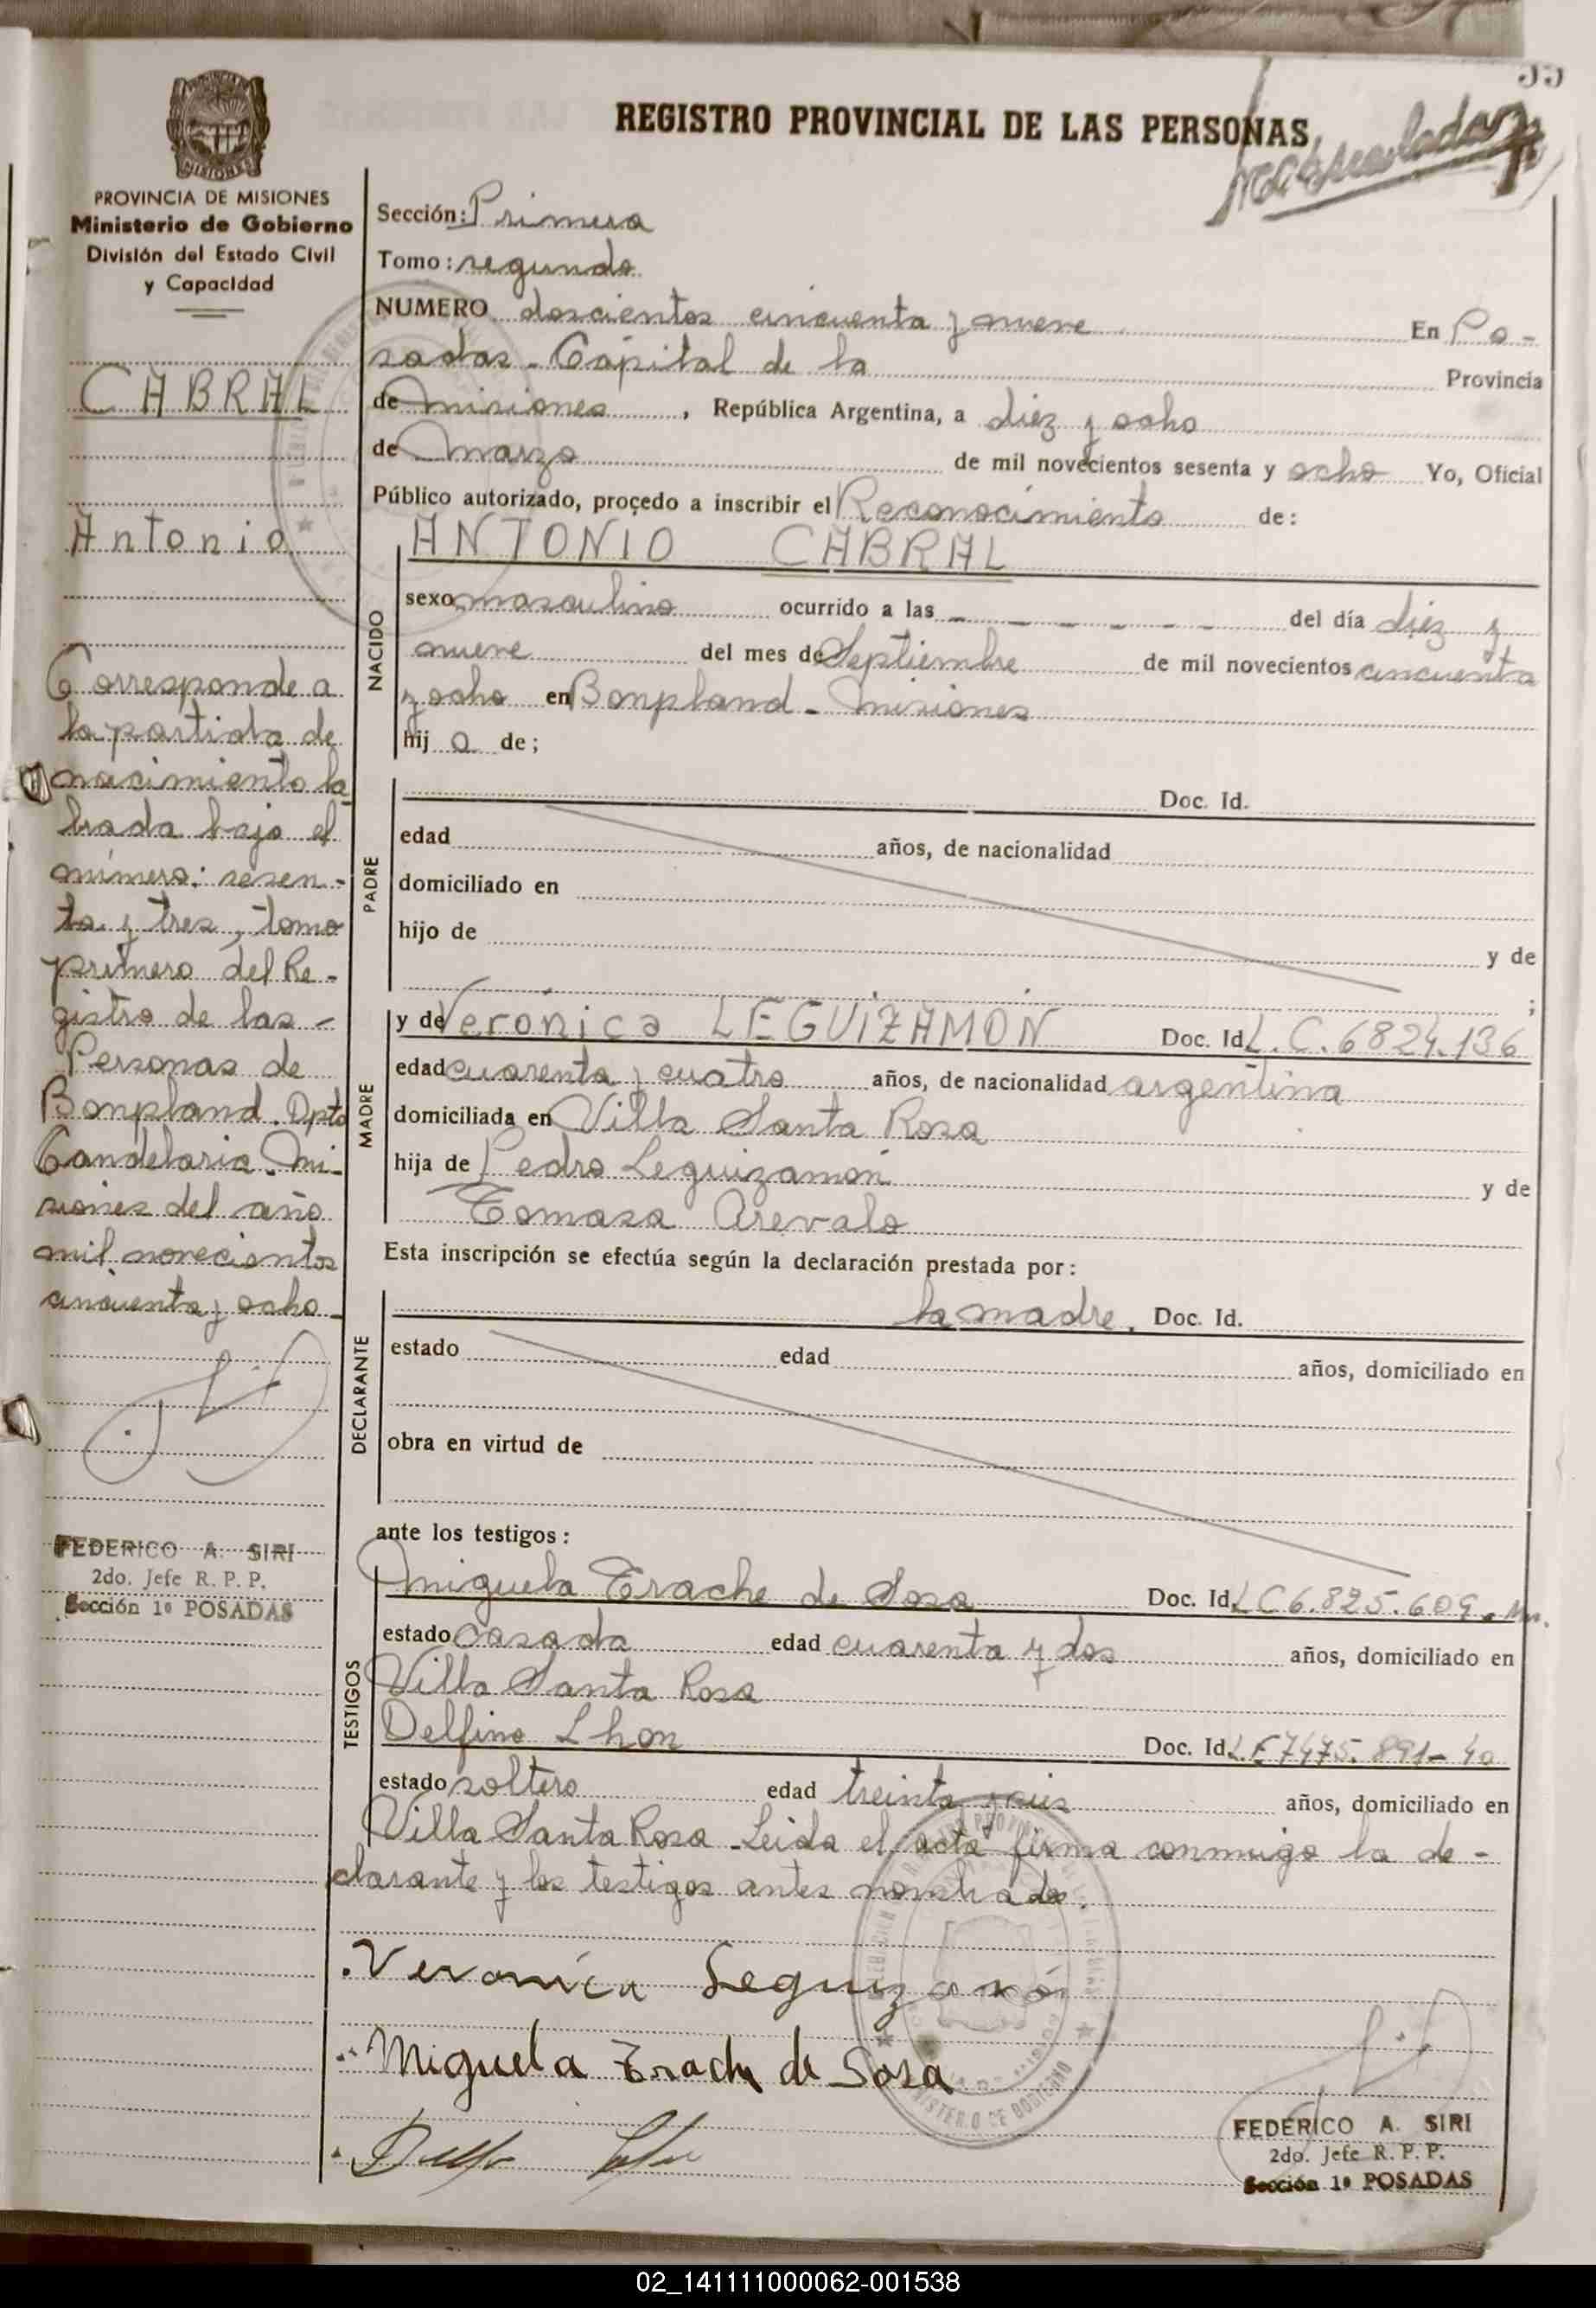 REGISTRO PROVINCIAL DE LAS PERSONAS
PROVINCIA DE MISIONES
Ministerio de Gobierno
División del Estado Civil
y Capacidad
CABRAL
Antonio
Corresponde a
la partida de
nacimiento la
brada bajo el
número: sesen-
ta y tres, tomo
primero del Re-
gistro de las -
Personas de
Bonpland. Dpto
Candelaria. Mi-
siones del año
mil novecientos
cincuenta y ocho
FEDERICO A. SIRI
2do. Jefe R. P. P.
Sección 1ª POSADAS
Sección: Primera
Tomo: segundo
NUMERO doscientos cincuenta y nueve En Po-
sadas - Capital de la Provincia
de Misiones, República Argentina, a diez y ocho
de Marzo de mil novecientos sesenta y ocho Yo, Oficial
Público autorizado, procedo a inscribir el Reconocimiento de:
NACIDO
ANTONIO CABRAL
sexo masculino ocurrido a las - - - - - - del día diez y
nueve del mes de Septiembre de mil novecientos cincuenta
y ocho en Bonpland - Misiones
hij o de;
PADRE
Doc. Id.
edad años, de nacionalidad
domiciliado en
hijo de y de
;
MADRE
y de Verónica LEGUIZAMÓN Doc. Id. L.C. 6824.136
edad cuarenta y cuatro años, de nacionalidad argentina
domiciliada en Villa Santa Rosa
hija de Pedro Leguizamón y de
Tomasa Arevalo
Esta inscripción se efectúa según la declaración prestada por:
DECLARANTE
la madre. Doc. Id.
estado edad años, domiciliado en
obra en virtud de
ante los testigos:
TESTIGOS
Miguela Trache de Sosa Doc. Id. LC 6.825.609
estado casada edad cuarenta y dos años, domiciliado en
Villa Santa Rosa
Delfino Lhon Doc. Id. L.E 7475.891-40
estado soltero edad treinta y seis años, domiciliado en
Villa Santa Rosa - Leida el acta firma conmigo la de-
clarante y los testigos antes nombrados.
Veronica Leguizamón
Miguela Trache de Sosa
FEDERICO A. SIRI
2do. Jefe R. P. P.
Sección 1ª POSADAS
02_141111000062-001538